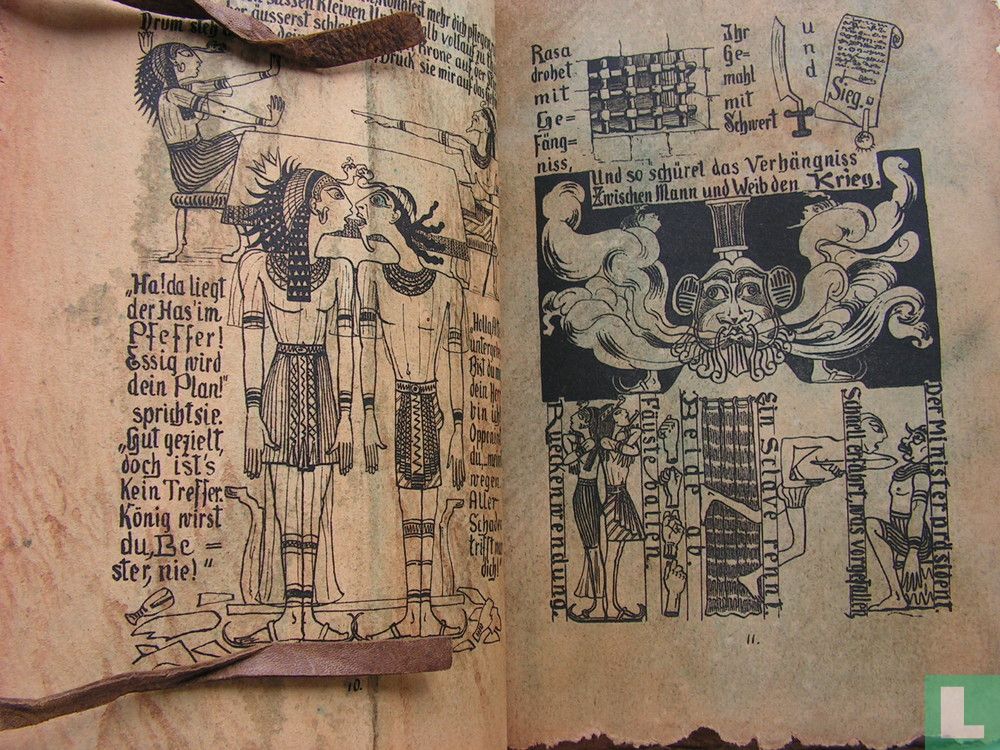 Drum sich
mehr dich pflegen,
sassen Kleinen
äusserst
vollauf zu
Krone auf der
Druck sie mir auf das
„Ha! da liegt
der Has' im
Pfeffer!
Essig wird
dein Plan!"
spricht sie.
„Gut gezielt,
doch ist's
Kein Treffer.
König wirst
du, Be=
ster, nie!"
dein
bin
du,
wegen
Aller
Schade
trifft
dich!"
10.
Rasa
drohet
mit
Ge=
fäng=
niss,
Ihr
Ge=
mahl
mit
Schwert
und
Sieg.
Und so schüret das Verhängniss
Zwischen Mann und Weib den Krieg.
Rückenwendung.
Fäuste ballen.
Beide ab.
Ein Sclave rennt.
Schnell erfährt, was vorgefallen,
Der Ministerpräsident
11.
L